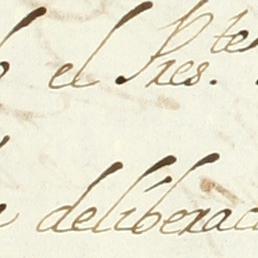 el Pres.te
deliberac